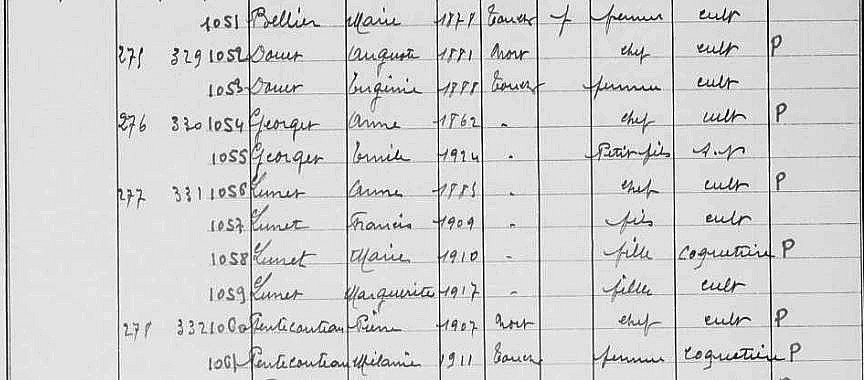 1051 Bellier Marie 1878 Touches f femme cult
275 329 1052 Douet Auguste 1881 Nort chef cult P
1053 Douet Eugénie 1888 Touches femme cult
276 330 1054 Georget Anne 1862 " chef cult P
1055 Georget Emile 1924 " Petit fils s.p
277 331 1056 Lunet Anne 1885 " chef cult P
1057 Lunet Francis 1909 " fils cult
1058 Lunet Marie 1910 " fille Coquetière P
1059 Lunet Marguerite 1917 " fille cult
278 332 1060 Penticouteau Pierre 1907 Nort chef cult P
1061 Penticouteau Mélanie 1911 Touches femme Coquetière P